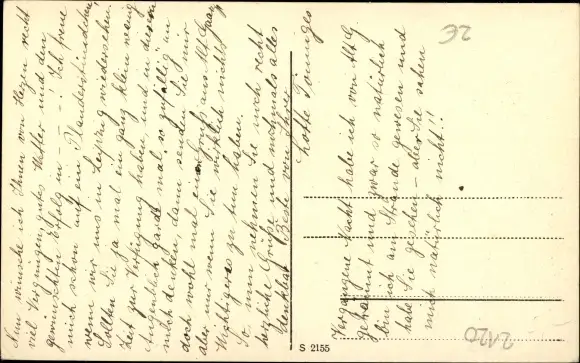 Nun wünsche ich Ihnen von Herzen recht
viel Vergnügen, gutes Wetter und den
gewünschten Erfolg in – – – ! Ich freue
mich schon auf ein Plauderstündchen
wenn wir uns in Leipzig wiedersehen.
Sollten Sie ja mal ein ganz klein wenig
Zeit zur Verfügung haben, und in diesem
Augenblick gerade mal, so zufällig an
mich denken, dann senden Sie mir
doch wohl mal einen Gruß aus Alt G
aber nur wenn Sie wirklich nichts
Wichtigeres zu tun haben.
So, nun nehmen Sie noch recht
herzliche Grüße und nochmals alles
denkbar Beste von Ihrer
Lotte
Vergangene Nacht habe ich von Alt G
geträumt und zwar so natürlich
bin ich am Strande gewesen und
habe Sie gesehen – aber Sie sahen
mich natürlich nicht!!
S 2155
2120